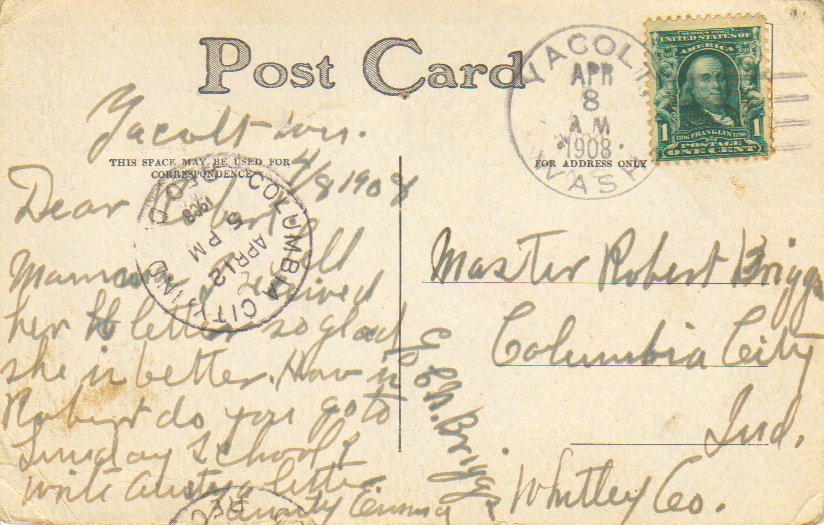 Post Card
THIS SPACE MAY BE USED FOR
CORRESPONDENCE
FOR ADDRESS ONLY
YACOL
APR
8
A M
1908
WASH
SERIES 1902
UNITED STATES OF
AMERICA
1 1706 FRANKLIN 1790 1
POSTAGE
ONE CENT
Yacolt
4/8 1908
COLUMBIA CITY, IND
APR 12
5 PM
1908
REC'D
Dear Robert
received
her letter so glad
she is better. How is
Robert do you go to
Sunday School
write Aunty a letter
Aunty Emma
Master Robert Briggs
Columbia City
Ind.
Whitley Co.
Briggs
REC